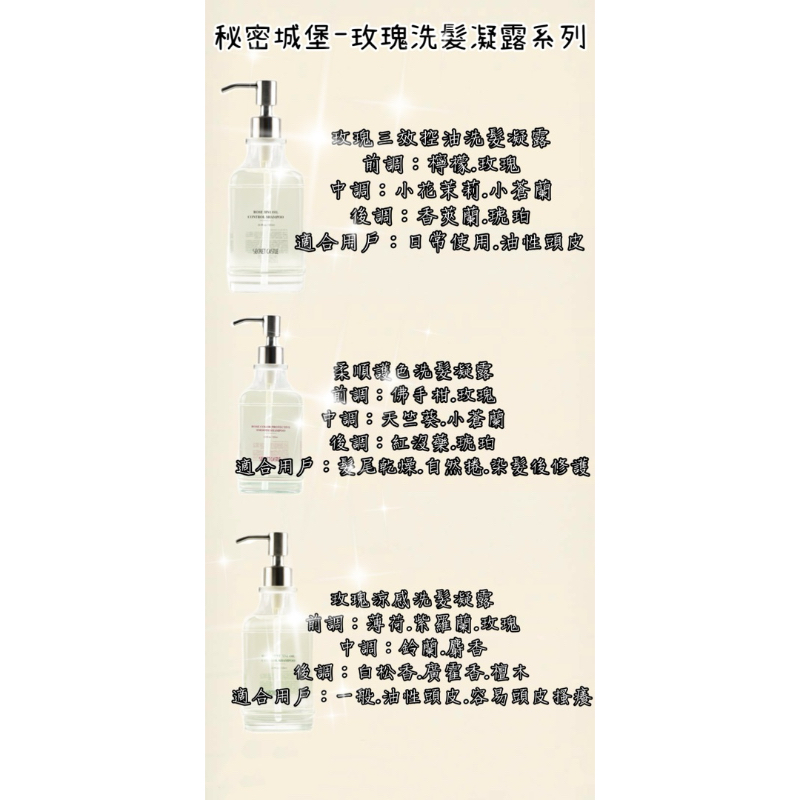 秘密城堡-玫瑰洗髮凝露系列
玫瑰三效控油洗髮凝露
前調：檸檬.玫瑰
中調：小花茉莉.小蒼蘭
後調：香莢蘭.琥珀
適合用戶：日常使用.油性頭皮
柔順護色洗髮凝露
前調：佛手柑.玫瑰
中調：天竺葵.小蒼蘭
後調：紅沒藥.琥珀
適合用戶：髮尾乾燥.自然捲.染髮後修護
玫瑰涼感洗髮凝露
前調：薄荷.紫羅蘭.玫瑰
中調：鈴蘭.麝香
後調：白松香.廣霍香.檀木
適合用戶：一般.油性頭皮.容易頭皮搔癢